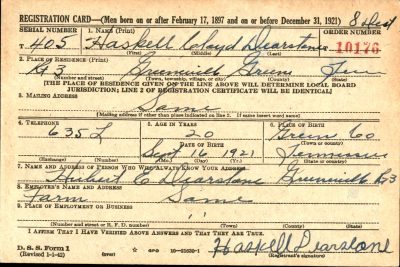 REGISTRATION CARD—(Men born on or after February 17, 1897 and on or before December 31, 1921)
SERIAL NUMBER 1. NAME (Print) ORDER NUMBER
T 405 Haskell Cloyd Dearstone 10176
(First) (Middle) (Last)
2. PLACE OF RESIDENCE (Print)
R3 Greeneville Green Tenn
(Number and street) (Town, township, village, or city) (County) (State)
[THE PLACE OF RESIDENCE GIVEN ON THE LINE ABOVE WILL DETERMINE LOCAL BOARD
JURISDICTION; LINE 2 OF REGISTRATION CERTIFICATE WILL BE IDENTICAL]
3. MAILING ADDRESS
Same
[Mailing address if other than place indicated on line 2. If same insert word same]
4. TELEPHONE 5. AGE IN YEARS 6. PLACE OF BIRTH
635 L 20 Green Co
DATE OF BIRTH (Town or county)
Sept 16 1921 Tennessee
(Exchange) (Number) (Mo.) (Day) (Yr.) (State or country)
7. NAME AND ADDRESS OF PERSON WHO WILL ALWAYS KNOW YOUR ADDRESS
Hubert C Dearstone Greeneville R3
8. EMPLOYER'S NAME AND ADDRESS
Farm Same
9. PLACE OF EMPLOYMENT OR BUSINESS
" "
(Number and street or R. F. D. number) (Town) (County) (State)
I AFFIRM THAT I HAVE VERIFIED ABOVE ANSWERS AND THAT THEY ARE TRUE.
D. S. S. Form 1
(Revised 1-1-42) (over) Haskell Dearstone
(Registrant's signature)